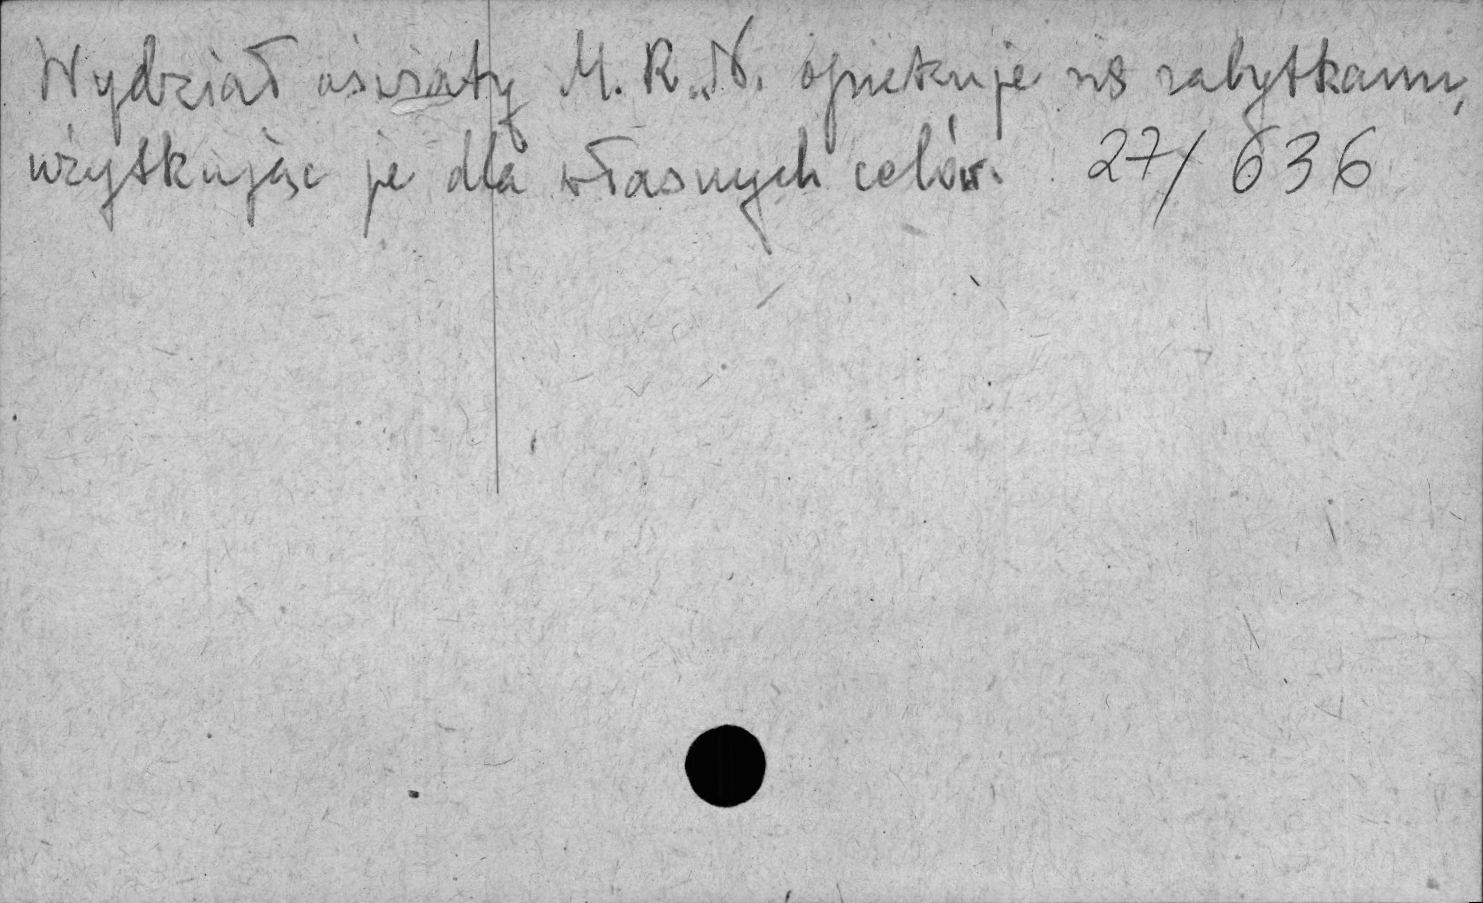 Wydział oświaty M.R.N. opiekuje się zabytkami,
użytkując je dla własnych celów. 27/636